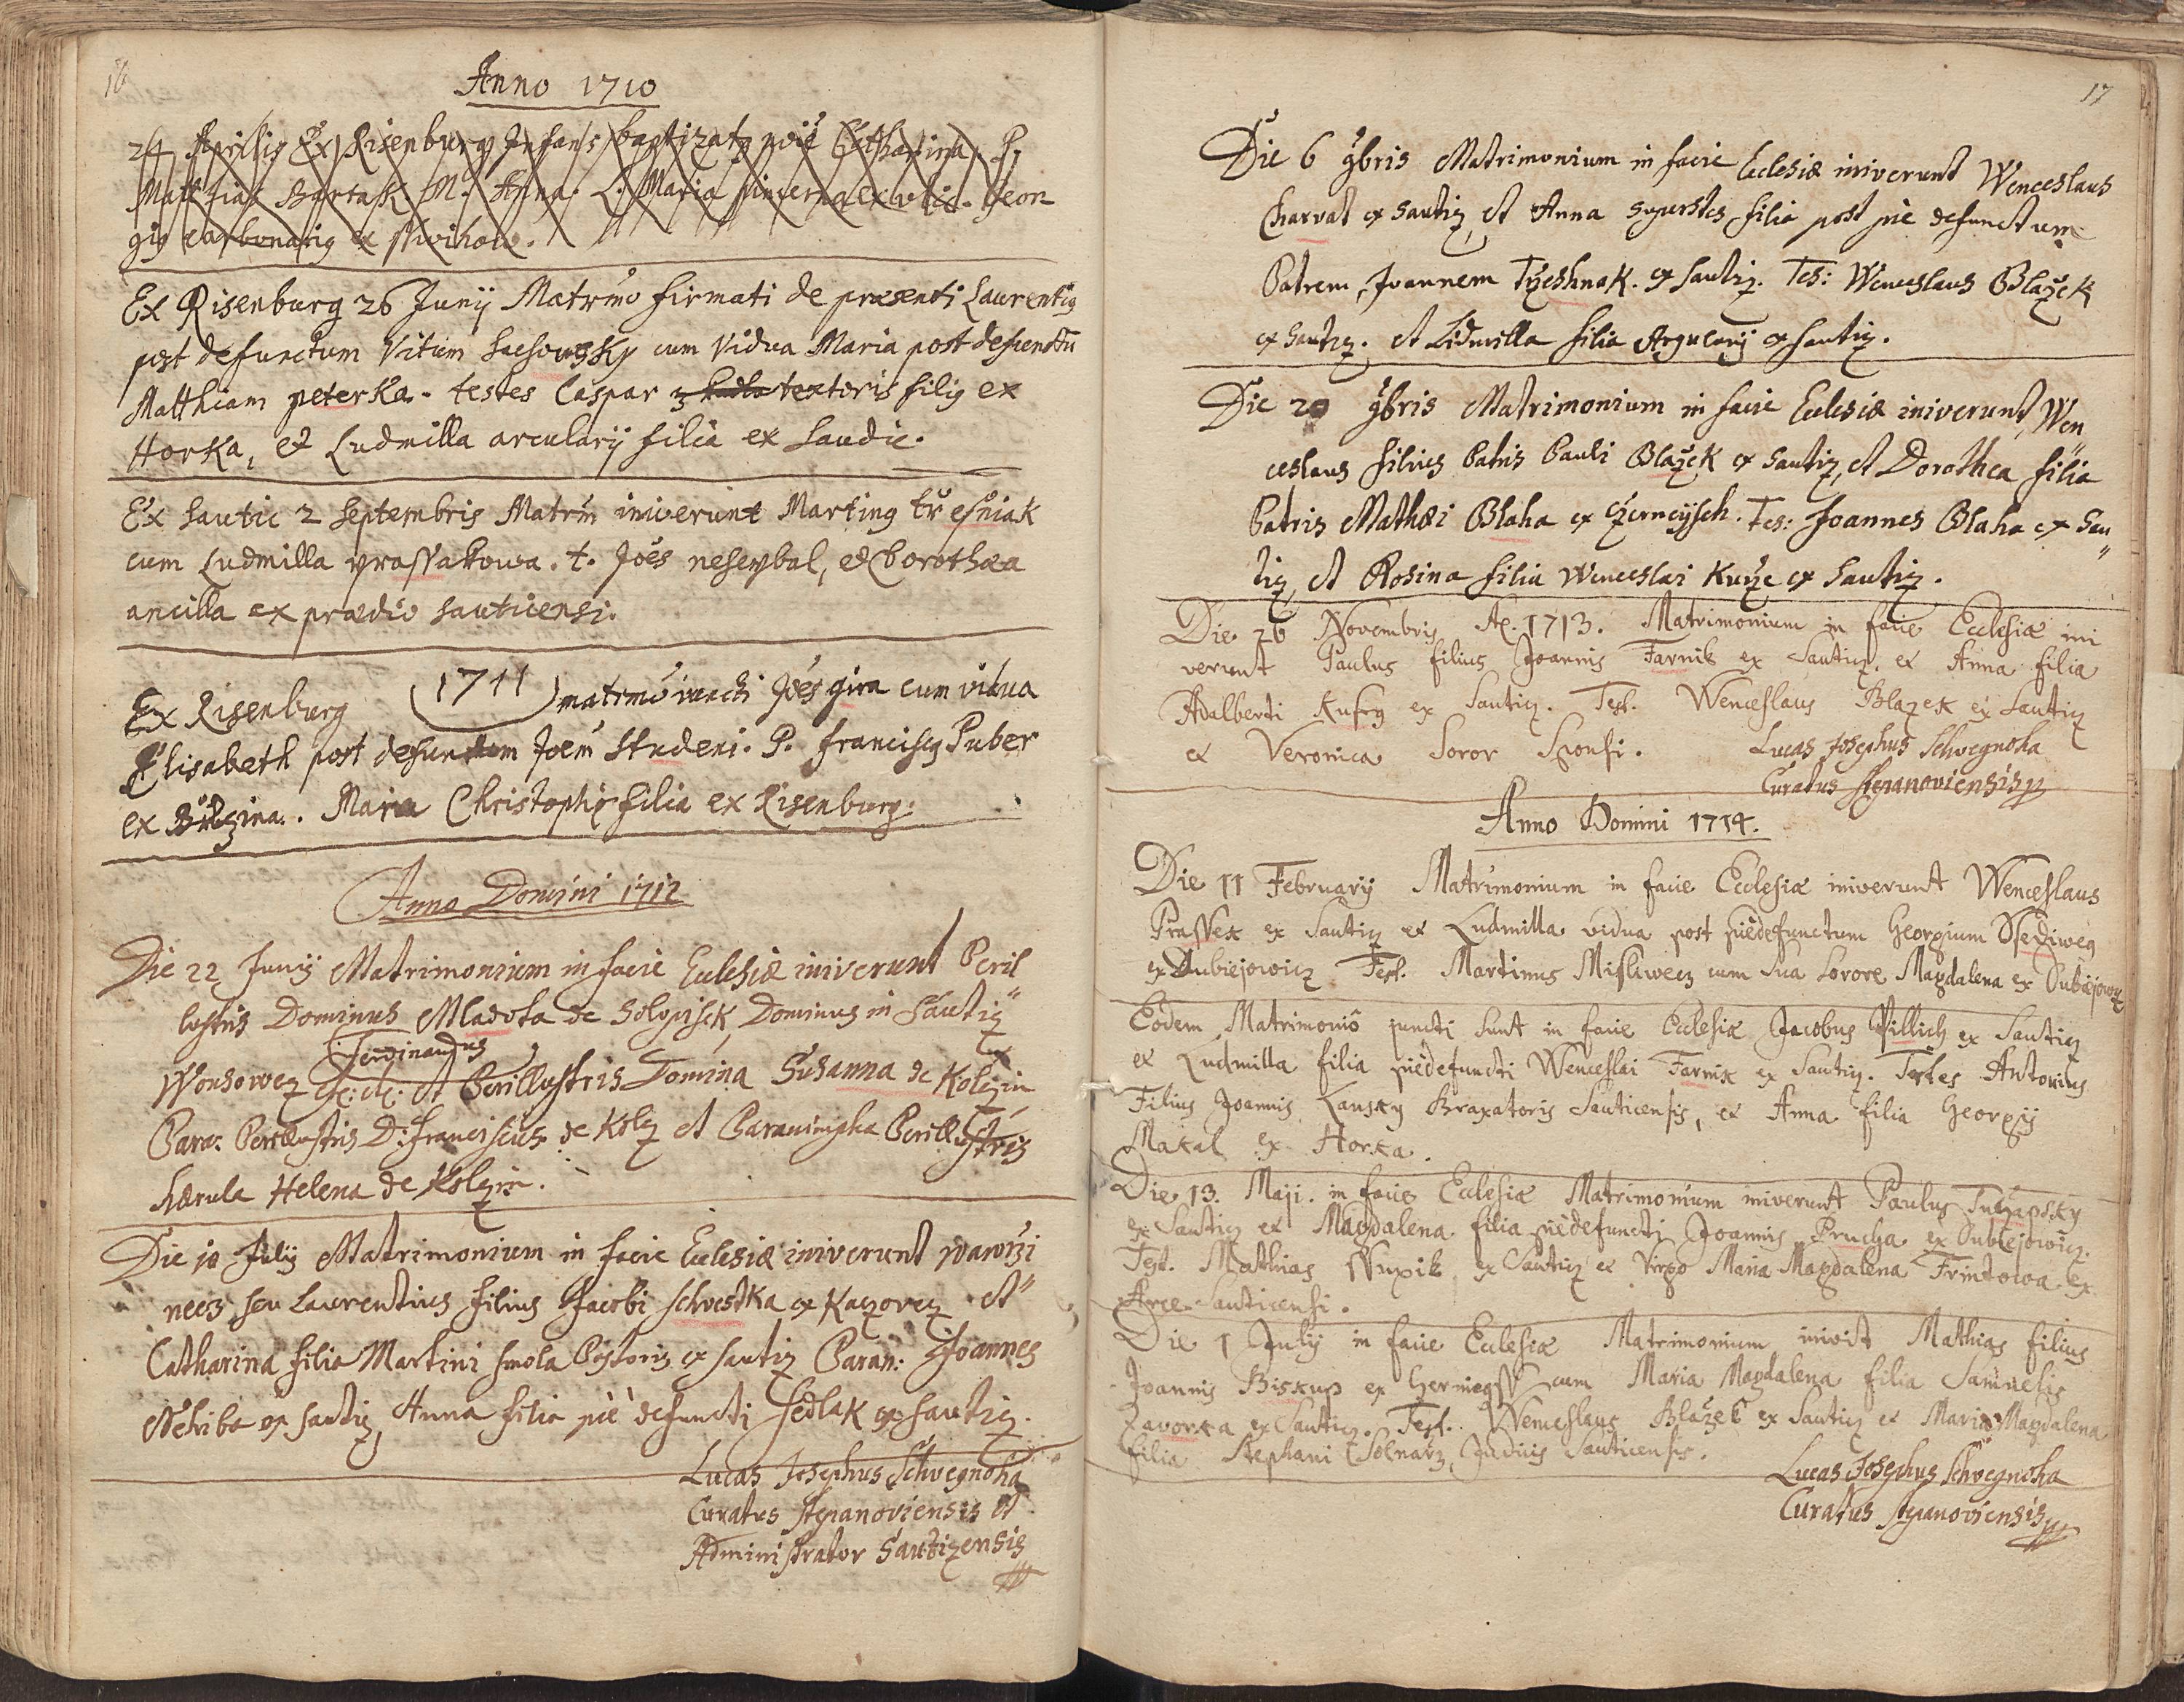 16
Anno 1710
24 Aprilis Ex Risenburg Infans baptizatq noie Catharina. P.
Matthias Bartak M: Anna. L. Maria
giq carbonariq ex
Ex Risenburg 26 Junij Matrmo firmati de præsenti Laurentiq
post defunctum Vitum cum Vidua Maria post defunctū
Matthiam peterka. testes Caspar textoris filiq ex
Horka, et Ludmilla arcularij filia ex Saudic.
Ex Sautic 2 Septembris Matrm iniverunt Martinq třesniak
cum Ludmilla prassakowa. t. Joes neheybal, et Dorothæa
ancilla ex prædio Sauticensi.
1711
Ex Risenburg matrmo iuncti Joes gira cum vidua
Elisabeth post defunctum Joem Studeni. P. franciscq Puber
ex . Maria Christophi filia ex Risenburg.
Anno Domini 1712
Die 22 Junij Matrimonium in facie Ecclesiæ iniverunt Peril
lustris Dominus Mladota de Solopisk, Dominus in Sautiz
Ferdinandus
et Perillustris Domina Susanna de Kolzin
Para: Perillustris D: Franciscus de Kolz et Paranimpha Perillustris
hærula Helena de Kolzin.
Die 10 Julij Matrimonium in facie Ecclesiæ iniverunt wawrži
necz, seu Laurentius filius Jacobi Schvestka ex Kaczovez et
Catharina filia Martini smola Pistoris ex Sautiz Paran: Joannes
Nehiba ex Sautiz, Anna filia pie defuncti Sedlak ex Sautiz.
Lucas Josephus Schvegnoha
Curatus Stepanoviensis et
Administrator Sautizensis
17
Die 6 9bris Matrimonium in facie Ecclesiæ iniverunt Wenceslaus
Charvat ex Sautiz, et Anna superstes filia post pie defunctum
Patrem, Joannem Tržeshnak. ex Sautiz. Tes: Wenceslaus Blažek
ex Sautiz. et Lidmilla filia Arcularij ex Sautiz.
Die 20 9bris Matrimonium in facie Ecclesiæ iniverunt, Wen
ceslaus filius Patris Pauli Blažek ex Sautiz, et Dorothea filia
Patris Mathæi Blaha ex Czerneysch. Tes: Joannes Blaha ex Sau
tiz, et Rosina filia Wenceslai Kurže ex Sautiz.
Die 26 Novembris Ao. 1713. Matrimonium in facie Ecclesiæ ini
verunt Paulus filius Joannis Farnik ex Sautiz. et Anna filia
Adalberti Kufry ex Sautiz. Test. Wenceslaus Blazek ex Sautiz
et Veronica Soror Sponsi. Lucas Josephus Schvegnoha
Curatus Stepanoviensis
Anno Domini 1714.
Die 11 Februarij Matrimonium in facie Ecclesiæ iniverunt Wenceslaus
Prassek ex Sautiz et Ludmilla vidua post piè defunctum Georgium Ssediweg
ex Dubiejowicz Test. Martinus Misliwecz cum sua Sorore Magdalena ex Dubiejowiz
Eodem Matrimonio juncti sunt in facie Ecclesiæ Jacobus Pillich ex Sautiz
et Ludmilla filia piè defuncti Wenceslai Farnik ex Sautiz. Testes Antonius
Filius Joannis Lansky Braxatoris Sauticensis, et Anna filia Georgij
Makal ex Horka.
Die 13. Maji. in facie Ecclesiæ Matrimonium iniverunt Paulus
ex Sautiz et Magdalena filia piè defuncti Joannis Prucha ex Dubiejowicz.
Test. Mathias ex Sautiz et Virgo Maria Magdalena Frintowa ex
Arce Sauticensi.
Die 1 Julij in facie Ecclesiæ Matrimonium inivit Mathias filius
Joannis Biskup ex cum Maria Magdalena filia Samuelis
Zavorka ex Sautiz. Test. Wenceslaus Blažek ex Sautiz et Maria Magdalena
filia Stephani Solnarz, Judicis Sauticensis.
Lucas Josephus Schvegnoha
Curatus Stepanoviensis